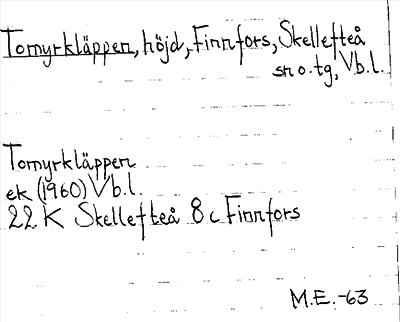 Tomyrkläppen, höjd, Finnfors, Skellefteå
sn o. tg, Vb.l.
Tomyrkläppen
ek (1960) Vb.l.
22 K Skellefteå 8 c Finnfors
M.E.-63